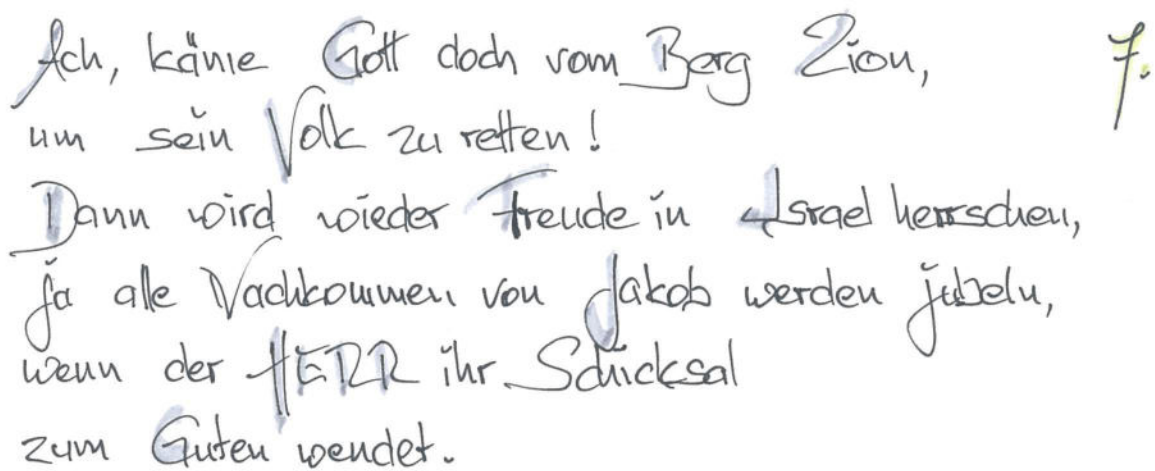 Ach, käme Gott doch vom Berg Zion, 7.
um sein Volk zu retten!
Dann wird wieder Freude in Israel herrschen,
ja alle Nachkommen von Jakob werden jubeln,
wenn der HERR ihr Schicksal
zum Guten wendet.